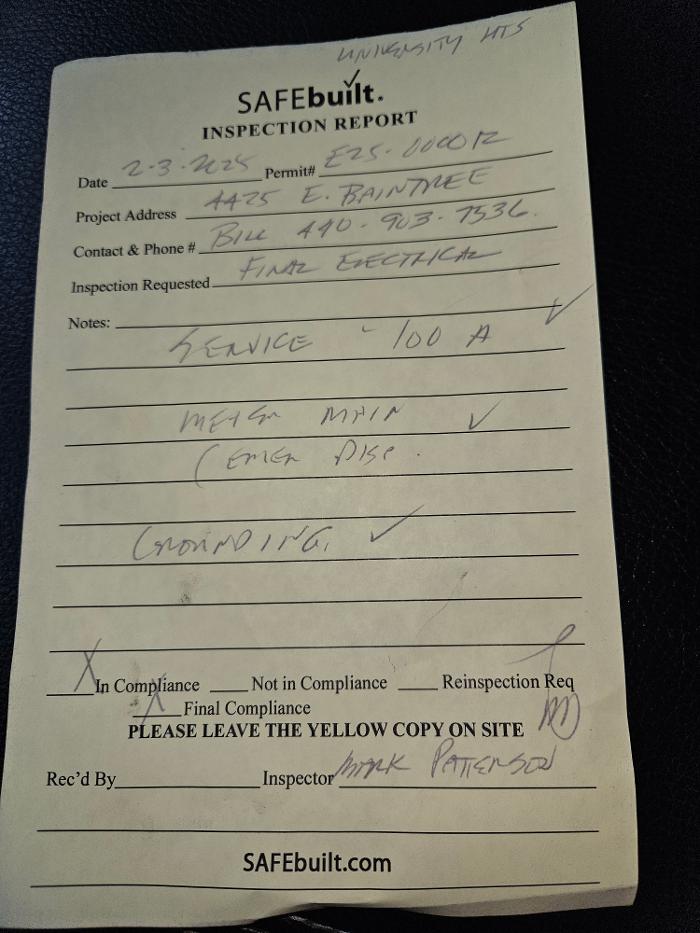 UNIVERSITY HTS
SAFEbuilt.
INSPECTION REPORT
Date 2-3-2025 Permit# E25-00001R
Project Address 4425 E. BAINTREE
Contact & Phone # BILL 440-903-7536.
Inspection Requested FINAL ELECTRICAL
Notes:
SERVICE - 100 A ✓
METER MAIN ✓
(EMER DISC.
GROUNDING. ✓
X In Compliance ___ Not in Compliance ___ Reinspection Req
X Final Compliance
PLEASE LEAVE THE YELLOW COPY ON SITE
Rec'd By Inspector MARK PATTERSON
SAFEbuilt.com